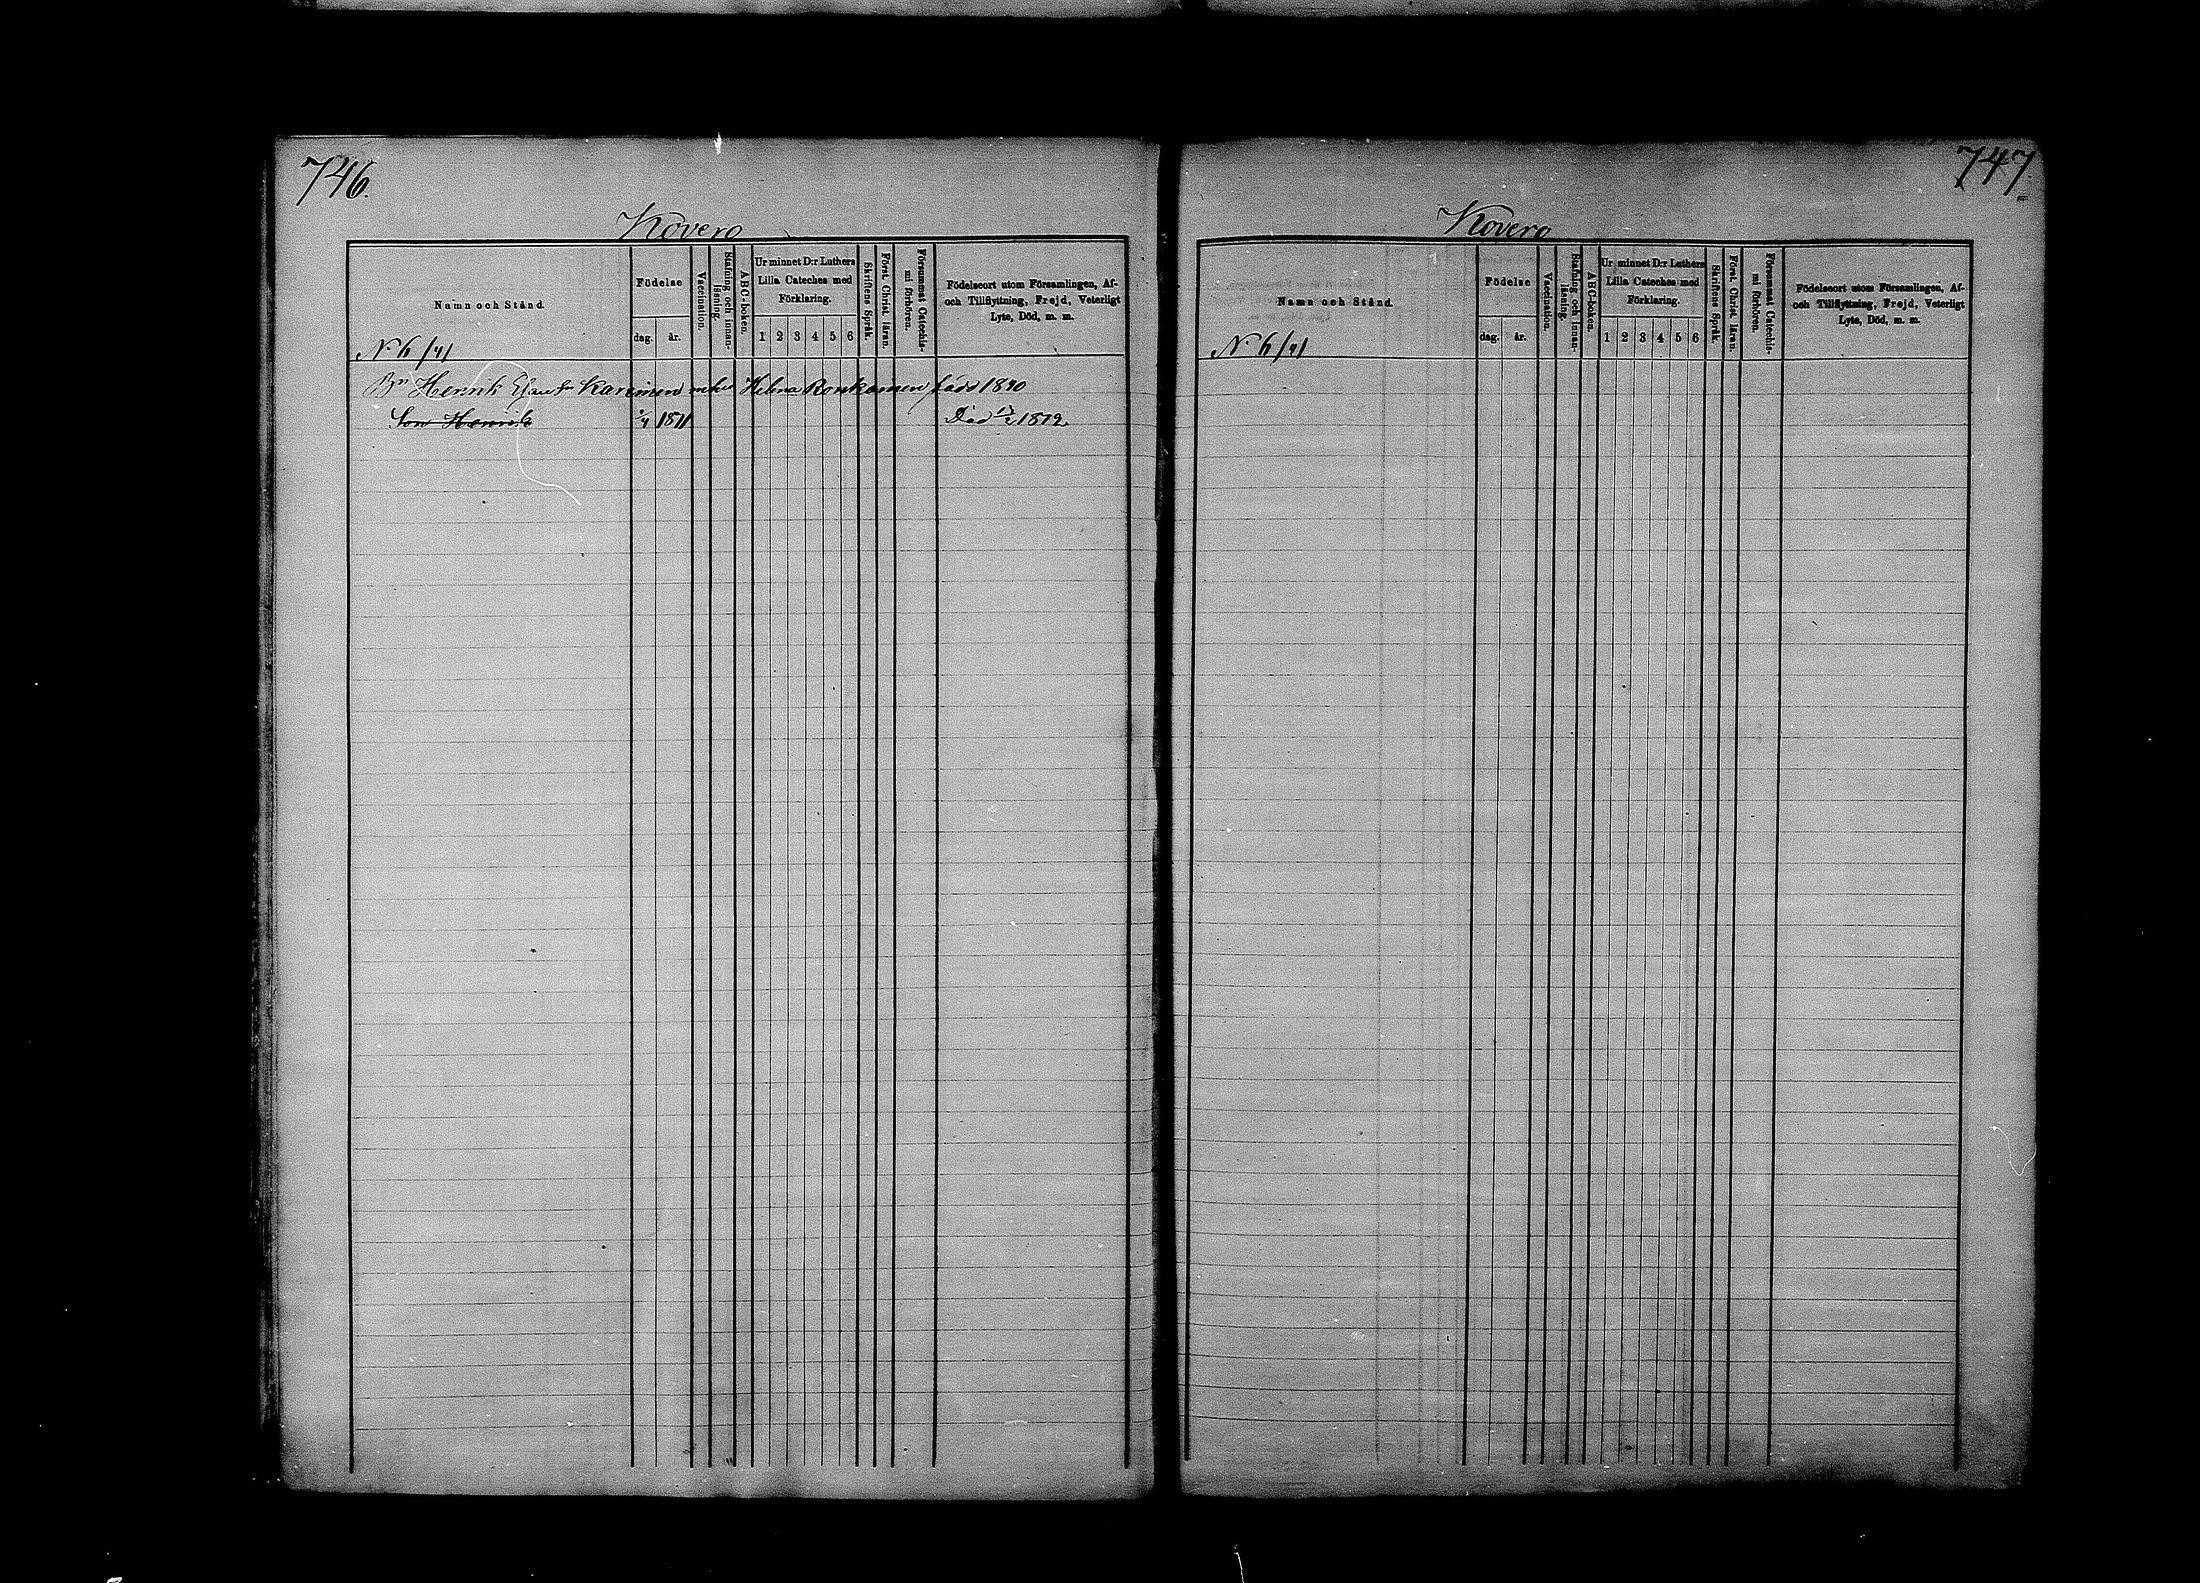 746.
Kovero
Namn och Stånd.
Födelse
dag.
år.
Vaccination.
Stafning och innan-
läsning.
ABC-boken.
Ur minnet D:r Luthers
Lilla Cateches med
Förklaring.
1 2 3 4 5 6
Skriftens Språk.
Först. Christ. läran.
Försummat Catechis-
mi förhören.
Födelseort utom Församlingen, Af-
och Tillflyttning, Frejd, Veterligt
Lyte, Död, m. m.
N. 6 /4/
Bn Henrik Karvinen enka Helena Ronkainen född 1840
Son Henrik 1871 Död 1872
747.
Kovero
Namn och Stånd.
Födelse
dag.
år.
Vaccination.
Stafning och innan-
läsning.
ABC-boken.
Ur minnet D:r Luthers
Lilla Cateches med
Förklaring.
1 2 3 4 5 6
Skriftens Språk.
Först. Christ. läran.
Försummat Catechis-
mi förhören.
Födelseort utom Församlingen, Af-
och Tillflyttning, Frejd, Veterligt
Lyte, Död, m. m.
N. 6 /4/